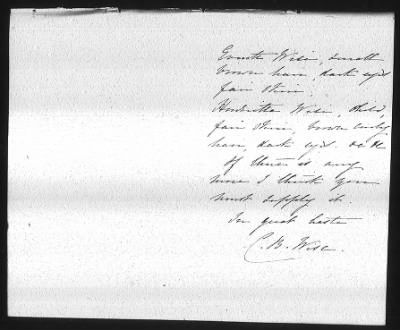 Evrett Wise, small
brown hair, dark eyes
fair skin.
Henrietta Wise, child,
fair skin, brown curly
hair, dark eyes. &c &c
If there is any
more I think you
must supply it.
In great haste
C. B. Wise.